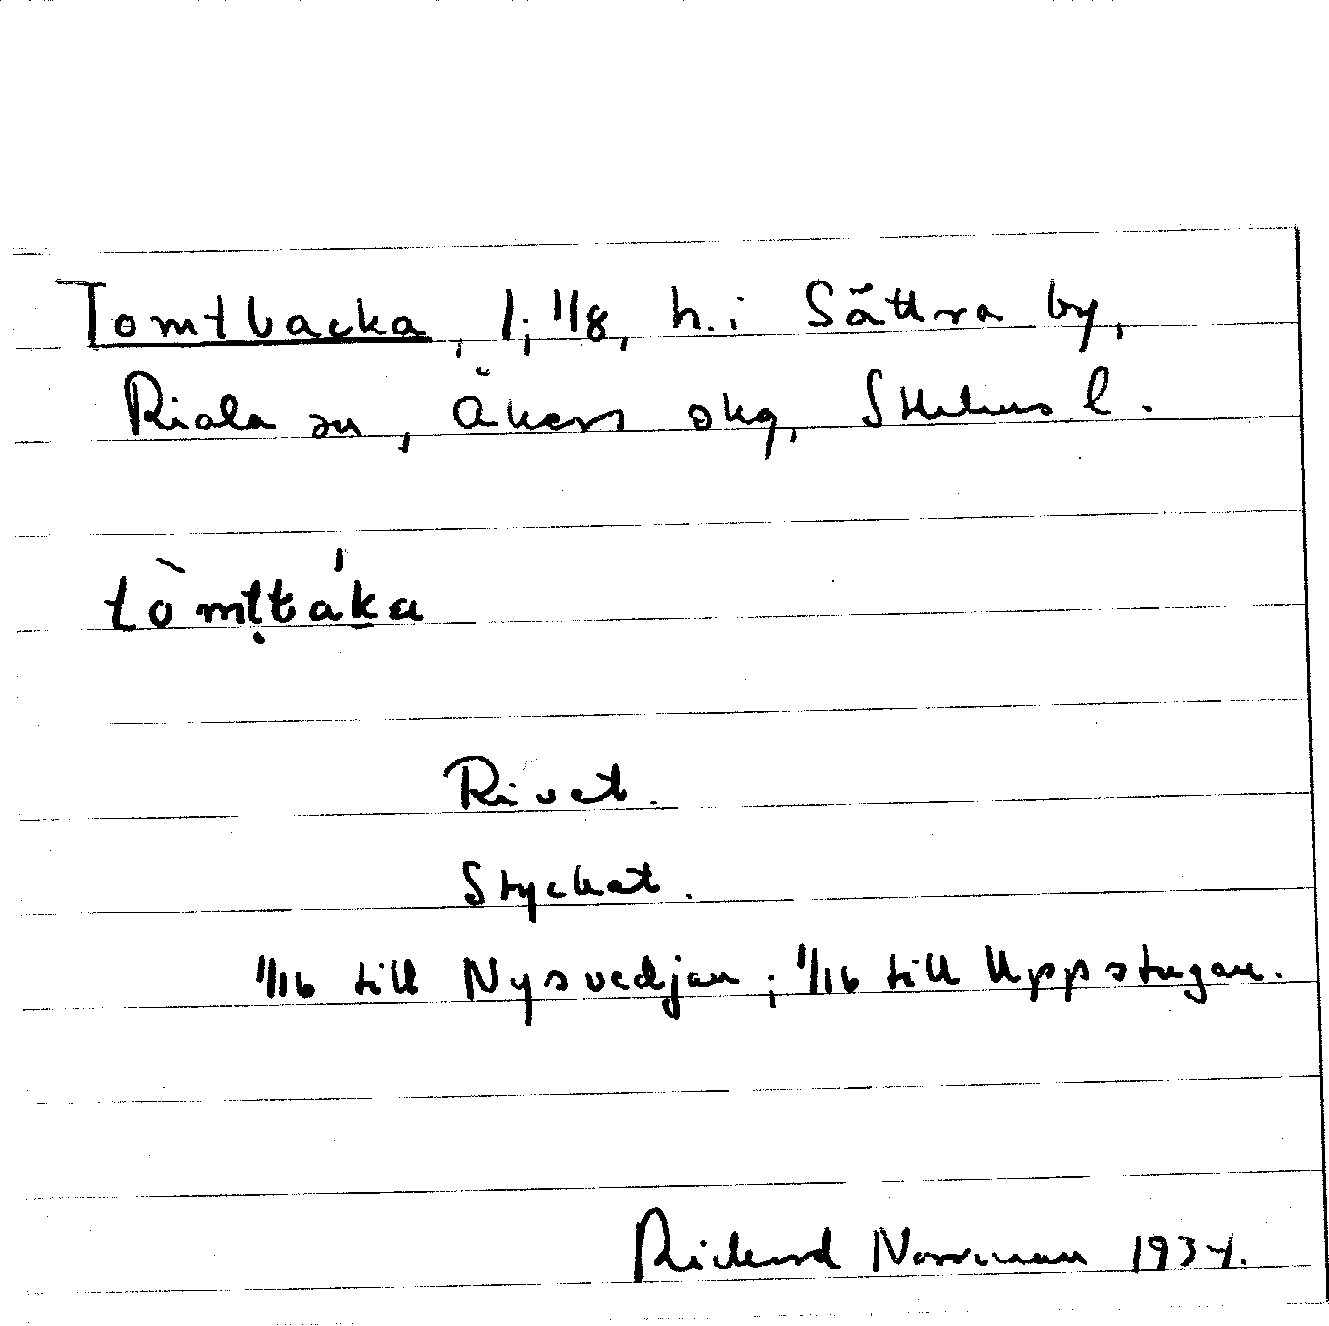 Tomtbacka, 1; 1/8, h. i Sättra by,
Riala sn, Åkers skg, Sthlms l.
tòmt̩táka
Rivet.
Styckat.
1/16 till Nysvedjan; 1/16 till Uppstugan.
Rickard Norrman 1934.